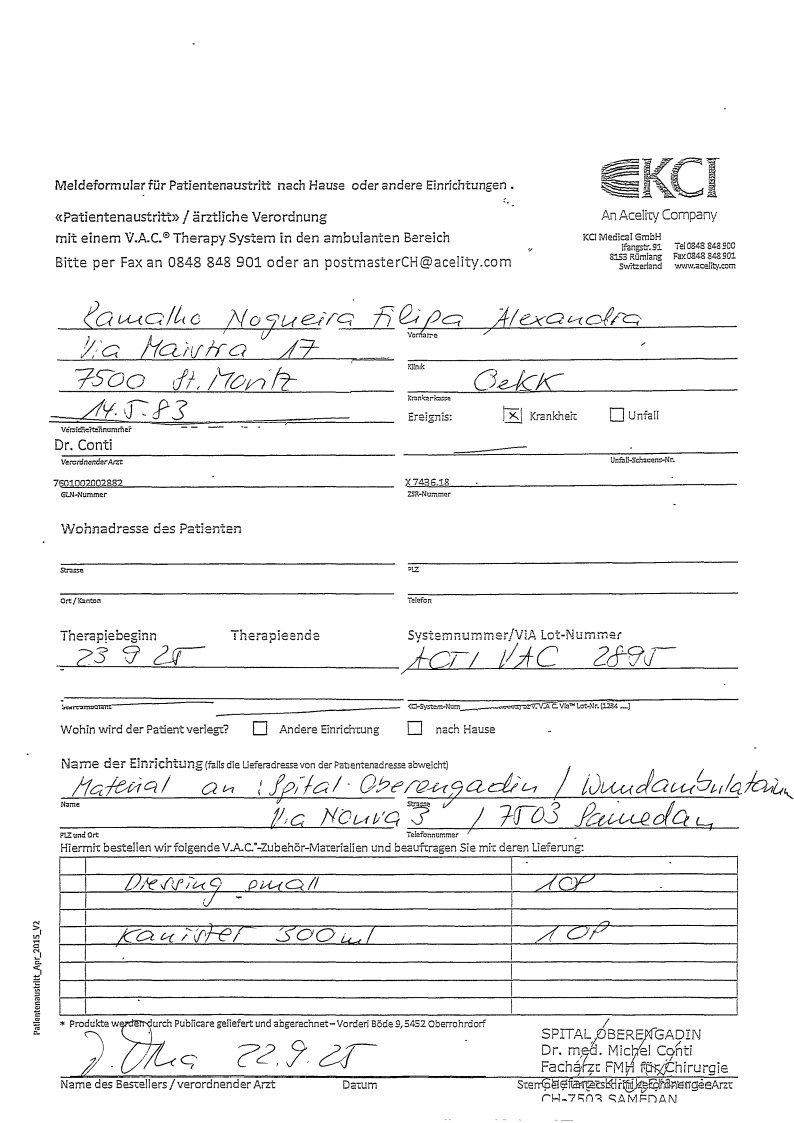 Meldeformular für Patientenaustritt nach Hause oder andere Einrichtungen.
KCI
An Acelity Company
«Patientenaustritt» / ärztliche Verordnung
mit einem V.A.C.® Therapy System in den ambulanten Bereich
Bitte per Fax an 0848 848 901 oder an postmasterCH@acelity.com
KCI Medical GmbH
Ifangstr. 91 Tel 0848 848 900
8153 Rümlang Fax 0848 848 901
Switzerland www.acelity.com
Ramalho Nogueira Filipa Alexandra
Vorname
Via Maistra 17
Klinik
7500 St. Moritz ÖeKK
Krankenkasse
14.5.83
Ereignis: Krankheit Unfall
Versichertennummer
Dr. Conti
Verordnender Arzt Unfall-Schadens-Nr.
7601002002882 X 7436.18
GLN-Nummer ZSR-Nummer
Wohnadresse des Patienten
Strasse PLZ
Ort / Kanton Telefon
Therapiebeginn Therapieende Systemnummer/VIA Lot-Nummer
23 9 25 ACTI VAC 2895
KCI-System-Num V.A.C. Via™ Lot-Nr. (1234 ....)
Wohin wird der Patient verlegt? Andere Einrichtung nach Hause
Name der Einrichtung (falls die Lieferadresse von der Patientenadresse abweicht)
Material an : Spital Oberengadin / Wundambulatorium
Name Strasse
Via Nouva 3 / 7503 Samedan
PLZ und Ort Telefonnummer
Hiermit bestellen wir folgende V.A.C.®-Zubehör-Materialien und beauftragen Sie mit deren Lieferung:
Dressing small 1 OP
Kanister 300ml 1 OP
* Produkte werden durch Publicare geliefert und abgerechnet – Vorderi Böde 9, 5452 Oberrohrdorf
22.9.25
SPITAL OBERENGADIN
Dr. med. Michel Conti
Facharzt FMH für Chirurgie
Name des Bestellers / verordnender Arzt Datum
CH-7503 SAMEDAN
Patientenaustritt_Apr_2015_V2